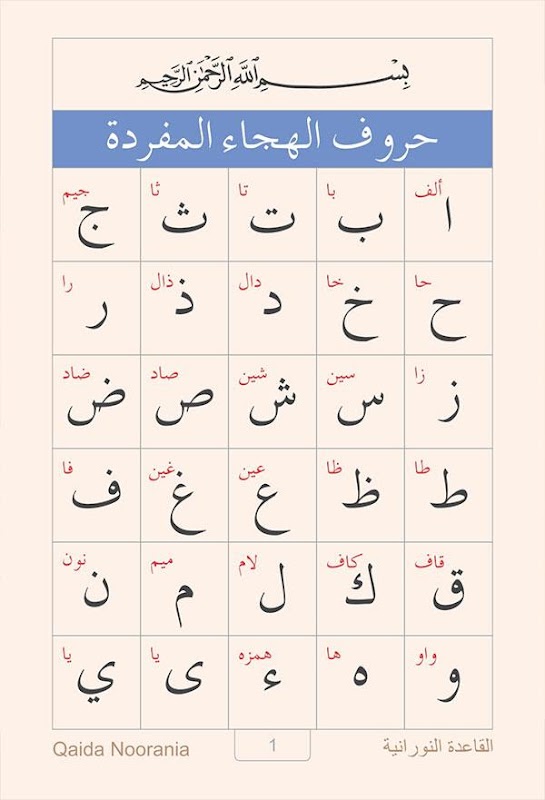 بسم الله الرحمن الرحيم
حروف الهجاء المفردة
ألف با تا ثا جيم
ا ب ت ث ج
حا خا دال ذال را
ح خ د ذ ر
زا سين شين صاد ضاد
ز س ش ص ض
طا ظا عين غين فا
ط ظ ع غ ف
قاف كاف لام ميم نون
ق ك ل م ن
واو ها همزه يا يا
و ه ء ى ي
القاعدة النورانية 1 Qaida Noorania